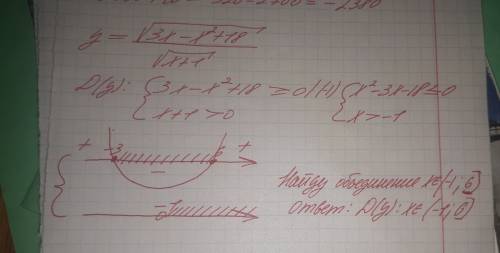 y = √(3x - x² + 18) / √(x + 1)
D(y): { 3x - x² + 18 ≥ 0 |·(-1) { x² - 3x - 18 ≤ 0
x + 1 > 0 x > -1
+ -3 - 6 +
-1
Найду объединение x∈(-1; 6]
Ответ: D(y): x∈(-1; 6]